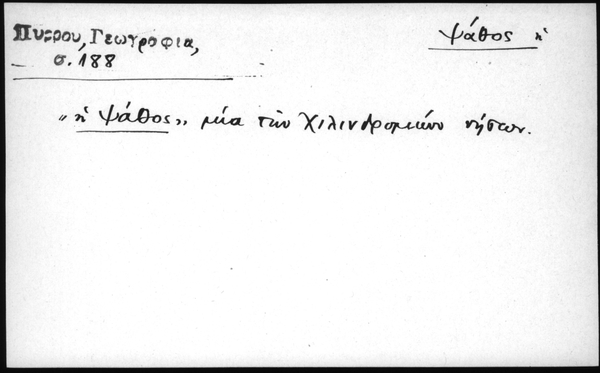 Πύρρου, Γεωγραφία,
σ. 188
Ψάθος ἡ
"ἡ Ψάθος", μία τῶν Χιλινδρομίων νήσων.